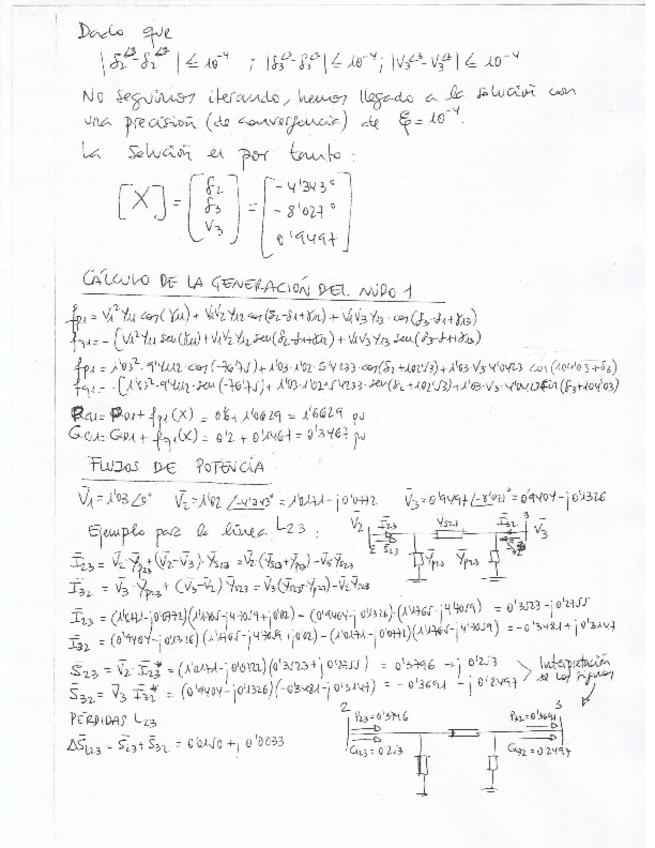 Dado que
|δ2^<3 - δ2^<2| ≤ 10^-4 ; |δ3^<3 - δ3^<2| ≤ 10^-4 ; |V3^<3 - V3^<2| ≤ 10^-4
No seguimos iterando, hemos llegado a la solución con
una precisión (de convergencia) de ξ = 10^-4.
La solución es por tanto:
[X] = [δ2 δ3 V3] = [-4'343° -8'027° 0'9497]
CÁLCULO DE LA GENERACIÓN DEL NUDO 1
fp1 = V1² Y11 cos(γ11) + V1V2 Y12 cos(δ2-δ1+γ12) + V1V3 Y13 · cos(δ3-δ1+γ13)
fq1 = -[V1² Y11 sen(γ11) + V1V2 Y12 sen(δ2-δ1+γ12) + V1V3 Y13 sen(δ3-δ1+γ13)
fp1 = 1'03² · 9'4112 · cos(-76'75) + 1'03 · 1'02 · 5'4233 · cos(δ2+102'53) + 1'03 · V3 · 4'0423 cos(104'03+δ3)
fq1 = -[1'03² · 9'4112 · sen(-76'75) + 1'03 · 1'02 · 5'4233 · sen(δ2+102'53) + 1'03 · V3 · 4'0423 sin(δ3+104'03)
PG1 = PD1 + fp1(X) = 0'6 + 1'0629 = 1'6629 pu
QG1 = QD1 + fq1(X) = 0'2 + 0'1467 = 0'3467 pu
FLUJOS DE POTENCIA
V̄1 = 1'03∠0° V̄2 = 1'02∠-4'343° = 1'0171 - j0'0772 V̄3 = 0'9497∠-8'027° = 0'9404 - j0'1326
Ejemplo para la línea L23 :
V̄2 Ī23 ȲS23 Ī32 3 V̄3
2 S̄23 Ȳp23 Ȳp23 S̄32
Ī23 = V̄2 · Ȳp23 + (V̄2 - V̄3) · ȲS23 = V̄2 (ȲS23 + Ȳp23) - V̄3 ȲS23
Ī32 = V̄3 · Ȳp23 + (V̄3 - V̄2) ȲS23 = V̄3 (ȲS23 + Ȳp23) - V̄2 ȲS23
Ī23 = (1'0171 - j0'0772)(1'1765 - j4'7059 + j0'02) - (0'9404 - j0'1326) · (1'1765 - j4'7059) = 0'3523 - j0'2755
Ī32 = (0'9404 - j0'1326)(1'1765 - j4'7059 + j0'02) - (1'0171 - j0'0772)(1'1765 - j4'7059) = -0'3481 + j0'3147
S̄23 = V̄2 · Ī23* = (1'0171 - j0'0772)(0'3523 + j0'2755) = 0'3796 + j0'253
S̄32 = V̄3 Ī32* = (0'9404 - j0'1326)(-0'3481 - j0'3147) = -0'3691 - j0'2497
Interpretación
de los signos
PÉRDIDAS L23
ΔS̄L23 = S̄23 + S̄32 = 0'0150 + j0'0033
2 P23=0'3796 P32=0'3691 3
Q23=0'253 Q32=0'2497